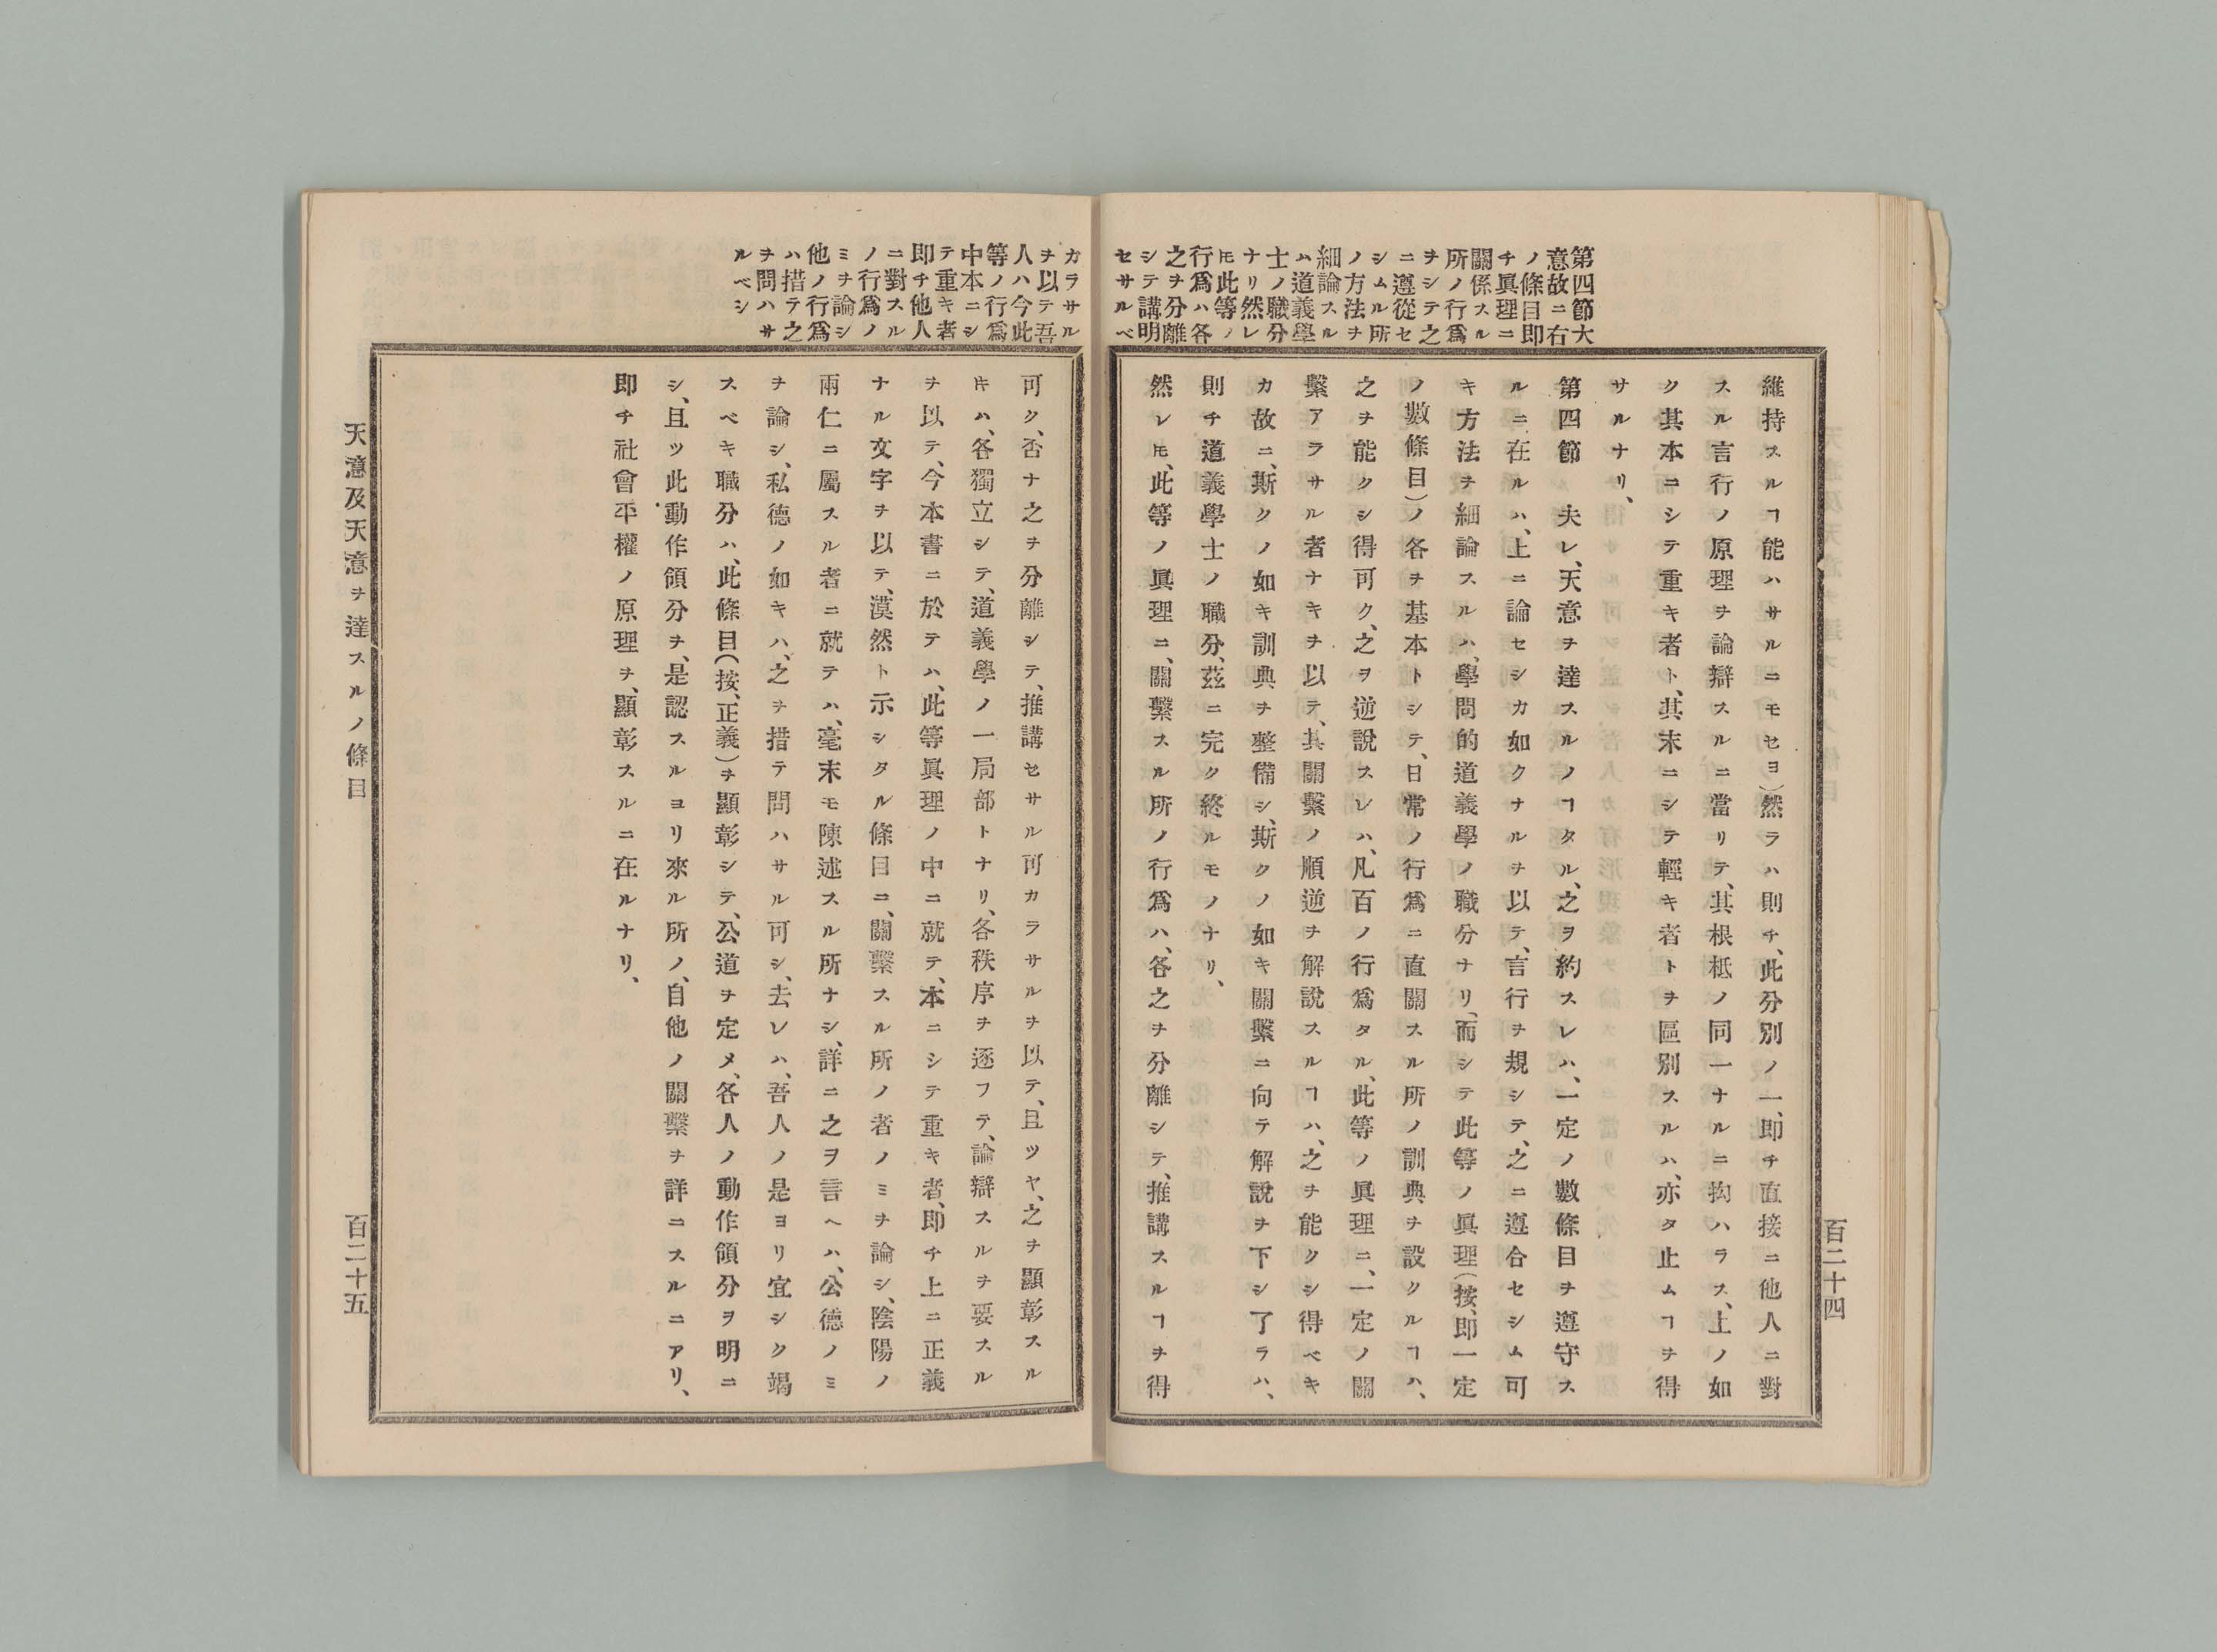 第四節大
意故ニ右
ノ條目即
チ眞理ニ
關係スル
所ノ行爲
ヲシテ之
ニ遵從セ
シムル所
ノ方法ヲ
細論スル
ハ道義學
士ノ職分
ナリ然レ
𪜈此等ノ
行爲ハ各
之ヲ分離
シテ講明
セサルベ
維持スルヿ能ハサルニモセヨ)然ラハ則チ、此分別ノ一、即チ直接ニ他人ニ對
スル言行ノ原理ヲ論辯スルニ當リテ、其根柢ノ同一ナルニ拘ハラス、上ノ如
ク其本ニシテ重キ者ト、其末ニシテ輕キ者トヲ區別スルハ、亦タ止ムヿヲ得
サルナリ、
第四節 夫レ、天意ヲ達スルノヿタル、之ヲ約スレハ、一定ノ數條目ヲ遵守ス
ルニ在ルハ、上ニ論セシカ如クナルヲ以テ、言行ヲ規シテ、之ニ遵合セシム可
キ方法ヲ細論スルハ、學問的道義學ノ職分ナリ、而シテ此等ノ眞理(按、即一定
ノ數條目)ノ各ヲ基本トシテ、日常ノ行爲ニ直關スル所ノ訓典ヲ設クルヿハ、
之ヲ能クシ得可ク、之ヲ逆說スレハ、凡百ノ行爲タル、此等ノ眞理ニ、一定ノ關
繫アラサル者ナキヲ以テ、其關繫ノ順逆ヲ解說スルヿハ、之ヲ能クシ得ベキ
カ故ニ、斯クノ如キ訓典ヲ整備シ、斯クノ如キ關繫ニ向テ解說ヲ下シ了ラハ、
則チ道義學士ノ職分、茲ニ完ク終ルモノナリ、
然レ𪜈、此等ノ眞理ニ、關繫スル所ノ行爲ハ、各之ヲ分離シテ、推講スルヿヲ得
百二十四
カラサル
ヲ以テ吾
人ハ今此
等ノ行爲
中本ニシ
テ重キ者
即チ他人
ニ對スル
ノ行爲ノ
ミヲ論シ
他ノ行爲
ハ措テ之
ヲ問ハサ
ルベシ
可ク、否ナ之ヲ分離シテ、推講セサル可カラサルヲ以テ、且ツヤ、之ヲ顯彰スル
𬼀ハ、各獨立シテ、道義學ノ一局部トナリ、各秩序ヲ逐フテ、論辯スルヲ要スル
ヲ以テ、今本書ニ於テハ、此等眞理ノ中ニ就テ、本ニシテ重キ者、即チ上ニ正義
ナル文字ヲ以テ、漠然ト示シタル條目ニ、關繫スル所ノ者ノミヲ論シ、陰陽ノ
兩仁ニ屬スル者ニ就テハ、毫末モ陳述スル所ナシ、詳ニ之ヲ言ヘハ、公德ノミ
ヲ論シ、私德ノ如キハ、之ヲ措テ問ハサル可シ、去レハ、吾人ノ是ヨリ宜シク竭
スベキ職分ハ、此條目(按、正義)ヲ顯彰シテ、公道ヲ定メ、各人ノ動作領分ヲ明ニ
シ、且ツ此動作領分ヲ、是認スルヨリ來ル所ノ、自他ノ關繫ヲ詳ニスルニアリ、
即チ社會平權ノ原理ヲ、顯彰スルニ在ルナリ、
天意及天意ヲ達スルノ條目
百二十五